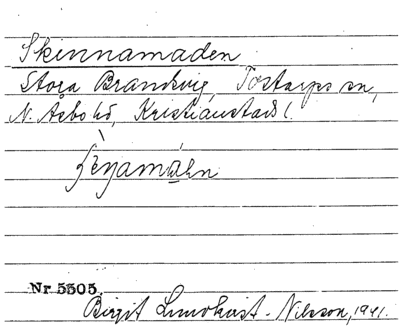 Skinnamaden
Stora Brandsvig, Tostarps sn,
N. Åsbo hd, Kristianstads l.
Nr 5505.
Birgit Lundkvist-Nilsson, 1941.